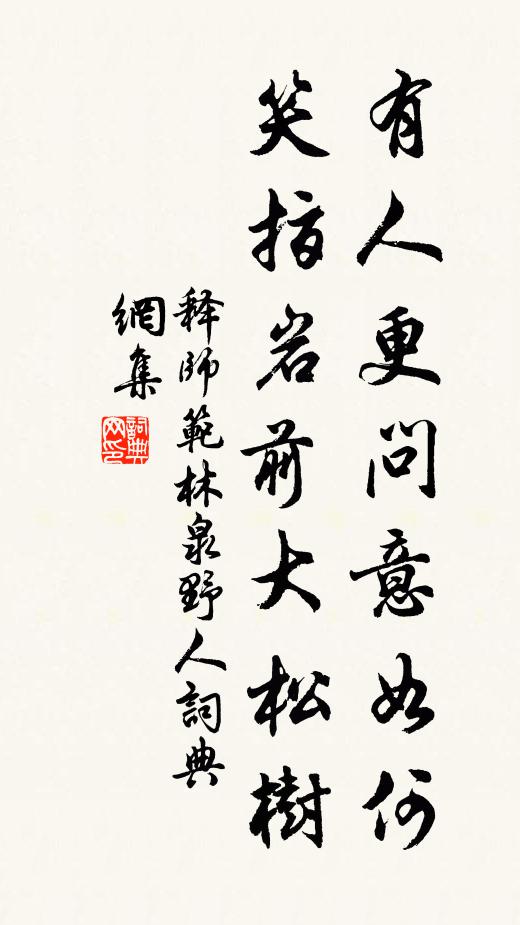 有人更問意如何
笑指岩前大松樹
释師範林泉野人詞典
網集
詞典
网印